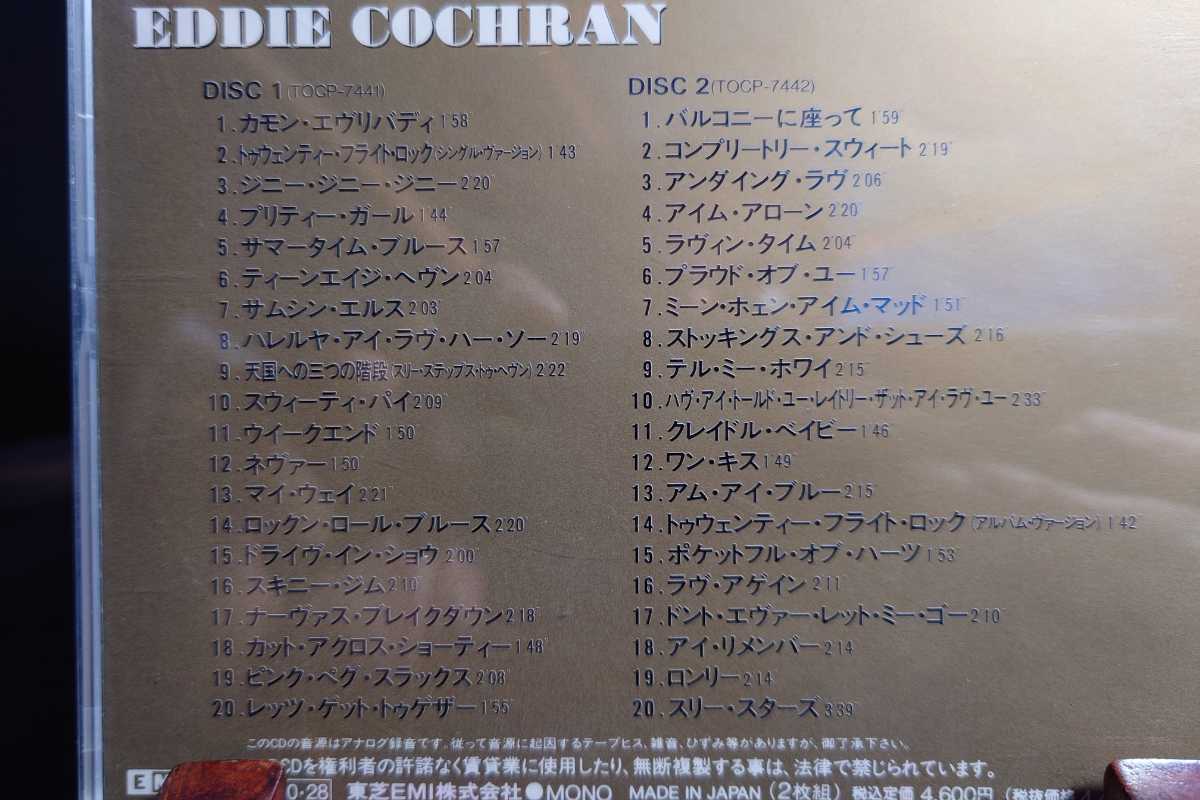 EDDIE COCHRAN
DISC 1(TOCP-7441)
1.カモン・エヴリバディ 1'58"
2.トゥウェンティー・フライト・ロック(シングル・ヴァージョン) 1'43"
3.ジニー・ジニー・ジニー 2'20"
4.プリティー・ガール 1'44"
5.サマータイム・ブルース 1'57
6.ティーンエイジ・ヘヴン 2'04"
7.サムシン・エルス 2'03"
8.ハレルヤ・アイ・ラヴ・ハー・ソー 2'19"
9.天国への三つの階段(スリー・ステップス・トゥ・ヘヴン) 2'22"
10.スウィーティ・パイ 2'09"
11.ウイークエンド 1'50"
12.ネヴァー 1'50
13.マイ・ウェイ 2'21"
14.ロックン・ロール・ブルース 2'20"
15.ドライヴ・イン・ショウ 2'00"
16.スキニー・ジム 2'10"
17.ナーヴァス・ブレイクダウン 2'18"
18.カット・アクロス・ショーティー 1'48"
19.ピンク・ペグ・スラックス 2'08"
20.レッツ・ゲット・トゥゲザー 1'55"
DISC 2(TOCP-7442)
1.バルコニーに座って 1'59"
2.コンプリートリー・スウィート 2'19"
3.アンダイング・ラヴ 2'06"
4.アイム・アローン 2'20"
5.ラヴィン・タイム 2'04"
6.プラウド・オブ・ユー 1'57"
7.ミーン・ホェン・アイム・マッド 1'51"
8.ストッキングス・アンド・シューズ 2'16"
9.テル・ミー・ホワイ 2'15"
10.ハヴ・アイ・トールド・ユー・レイトリー・ザット・アイ・ラヴ・ユー 2'33"
11.クレイドル・ベイビー 1'46
12.ワン・キス 1'49"
13.アム・アイ・ブルー 2'15"
14.トゥウェンティー・フライト・ロック(アルバム・ヴァージョン) 1'42"
15.ポケットフル・オブ・ハーツ 1'53
16.ラヴ・アゲイン 2'11
17.ドント・エヴァー・レット・ミー・ゴー 2'10
18.アイ・リメンバー 2'14
19.ロンリー 2'14
20.スリー・スターズ 3'39"
このCDの音源はアナログ録音です。従って音源に起因するテープヒス、雑音、ひずみ等がありますが、御了承下さい。
CDを権利者の許諾なく賃貸業に使用したり、無断複製する事は、法律で禁じられています。
0・28 東芝EMI株式会社 ●MONO MADE IN JAPAN (2枚組) 税込定価 4,600円 (税抜価